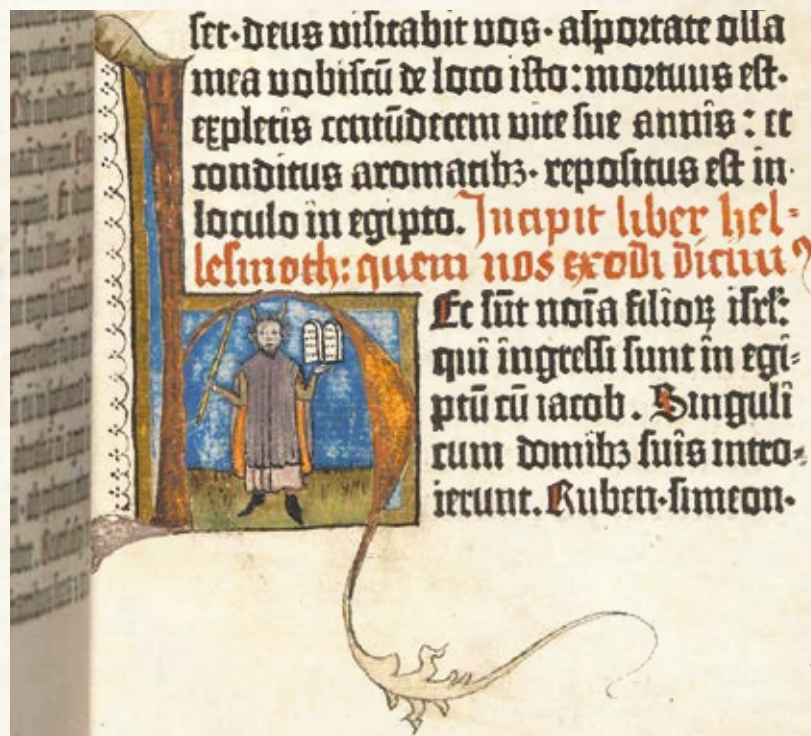 ſet·deus viſitabit vos·aſportate oſſa
mea vobiſcū de loco iſto:mortuus eſt·
expletis centūdecem vite ſue annis:et
conditus aromatibꝫ·repoſitus eſt in
loculo in egipto. Incipit liber hel-
leſmoth:quem nos exodi dicim⁹
Ec ſūt noīa filioꝝ iſrł:
qui ingreſſi ſunt in egi-
ptū cū iacob. Singuli
cum domibꝫ ſuis intro-
ierunt. Ruben·ſimeon·